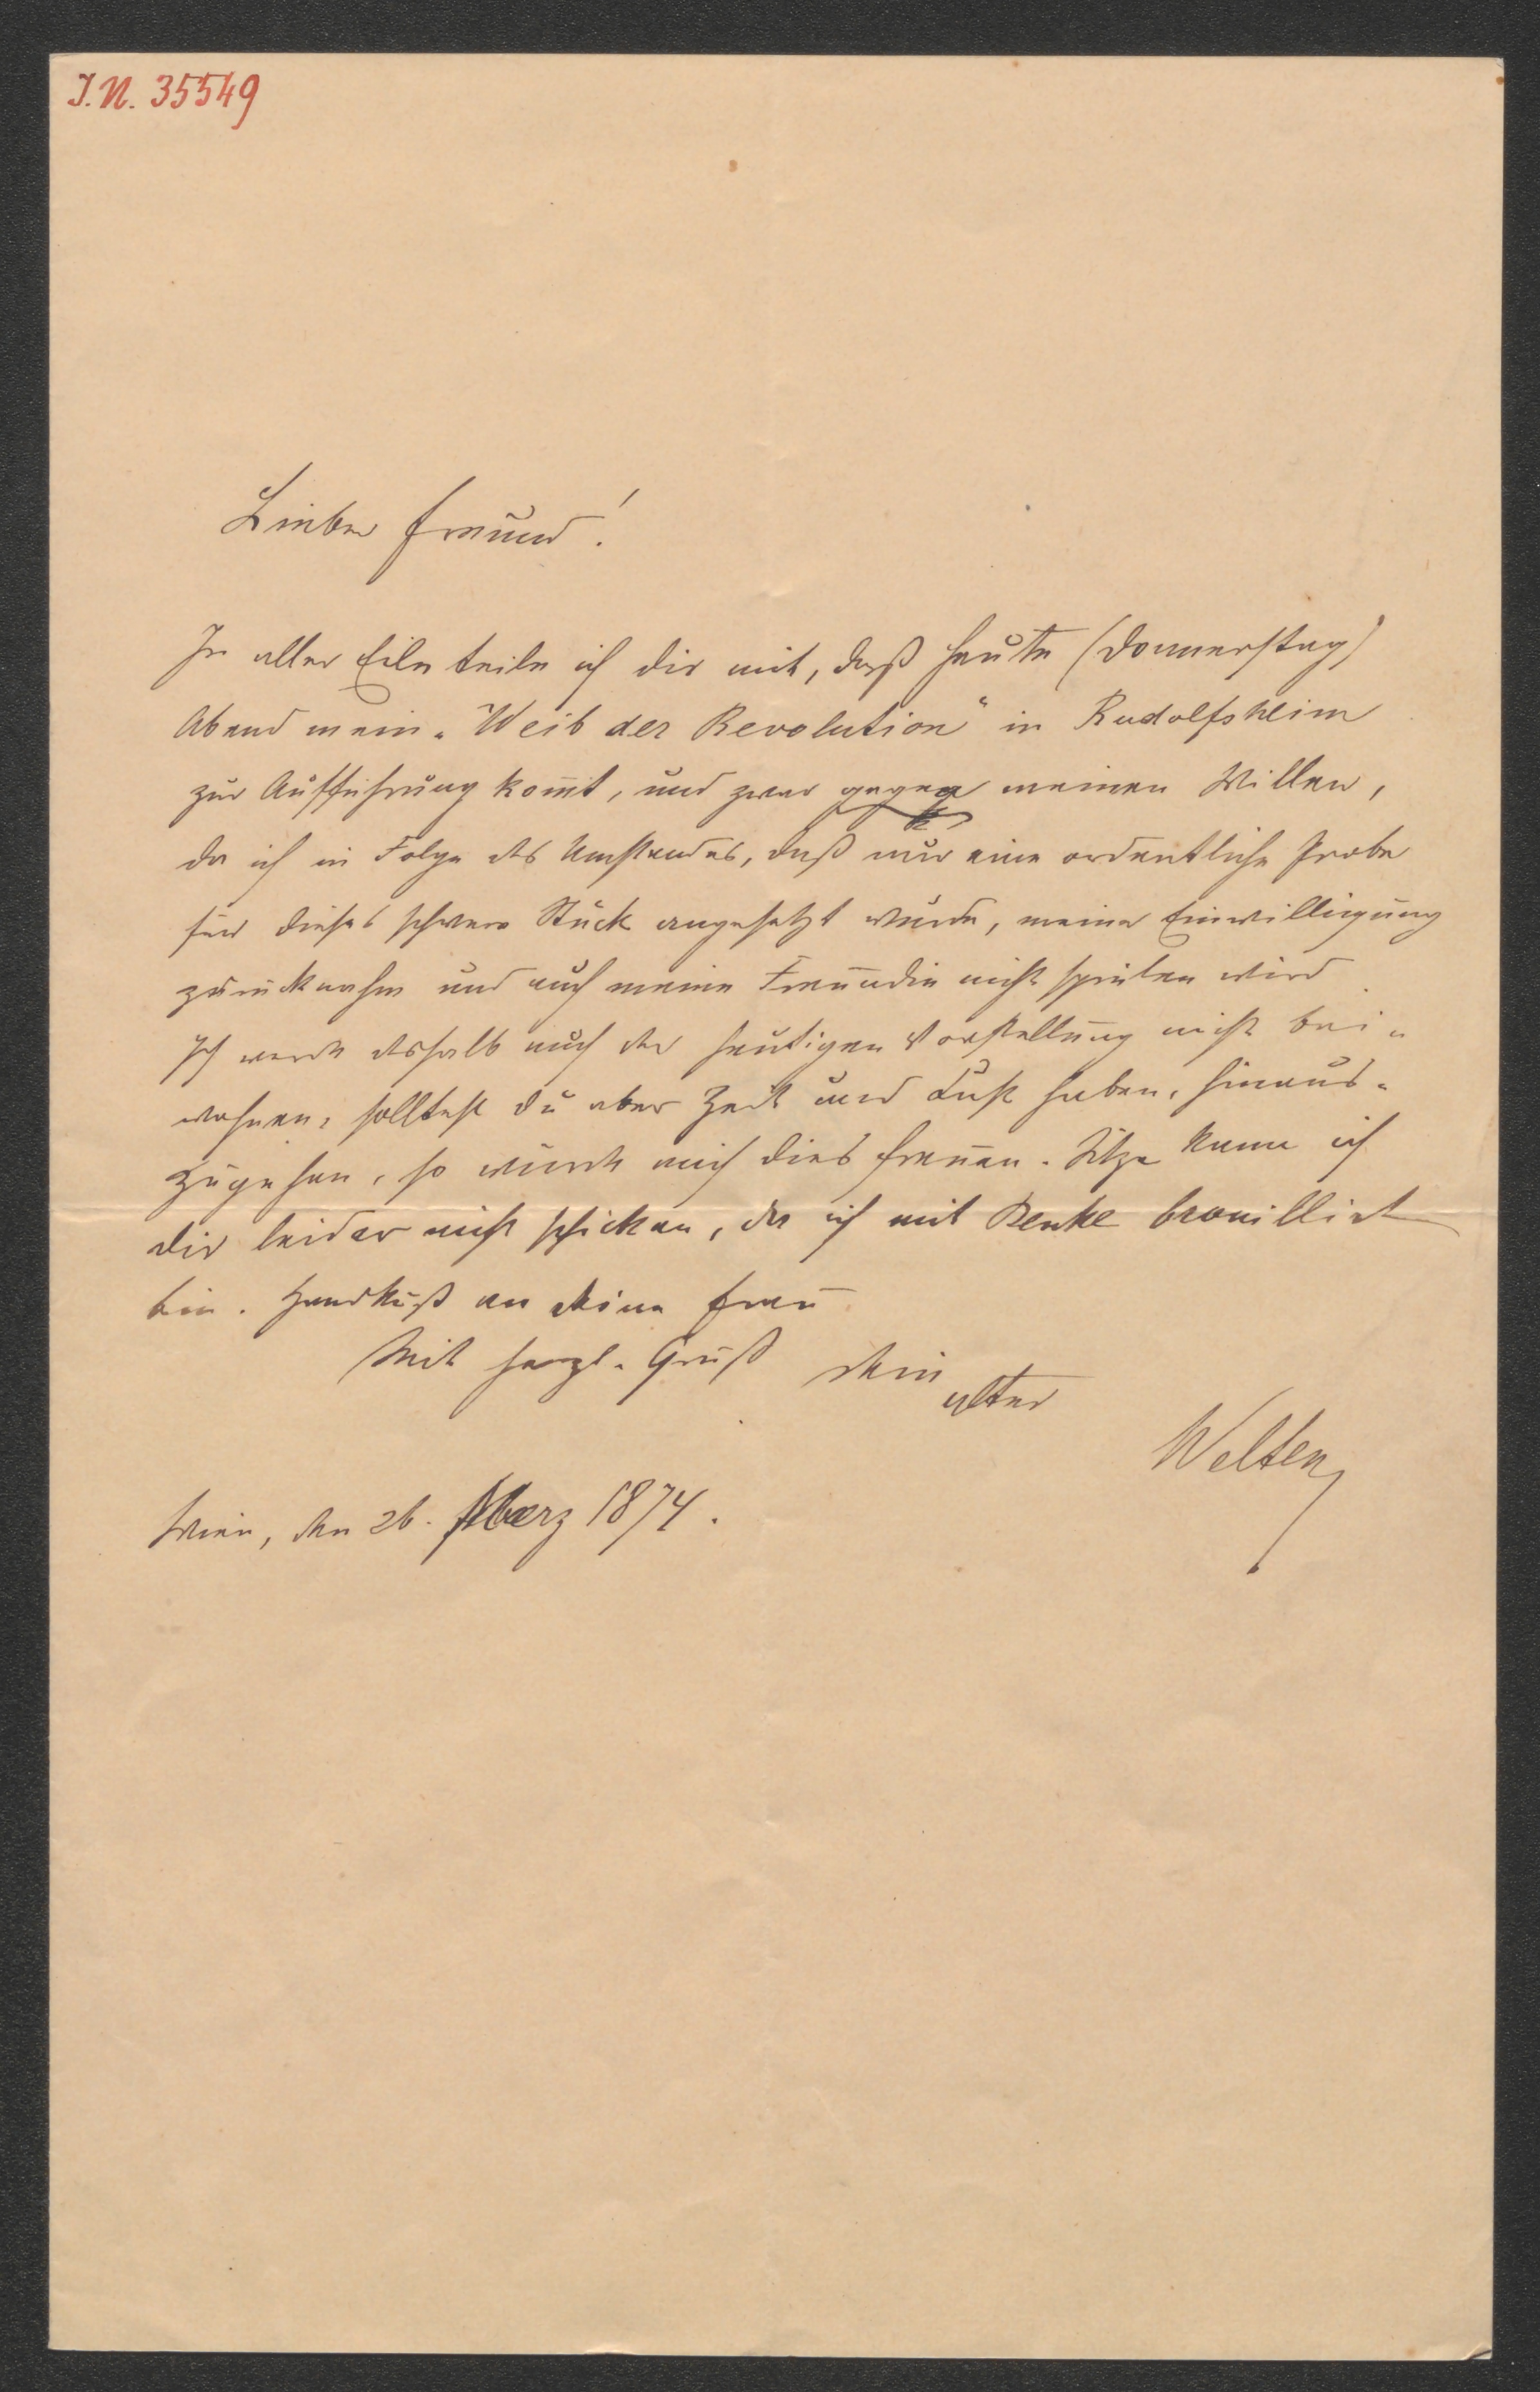 J.N. 35549
Lieber Freund!
In aller Eile teile ich dir mit, daß heute (Donnerstag)
Abend mein „Weib der Revolution“ in Rudolfsheim
zur Aufführung kom̄t, und zwar gegen meinen Willen,
da ich in Folge des Umstandes, daß nur eine ordentliche Probe
für dieses schwere Stück angesetzt wurde, meine Einwilligung
zurücknahm und auch meine Freundin nicht spielen wird.
Ich werde deshalb auch der heutigen Vorstellung nicht bei-
wohnen, solltest du aber Zeit und Lust haben, hinaus-
zugehen, so würde mich dies freuen. Sitze kann ich
dir leider nicht schicken, da ich mit Benke brouillirt
bin. Handkuß an deine Frau
Mit herzl. Gruß dein
alter
Welten
Wien, den 26. Maerz 1874.